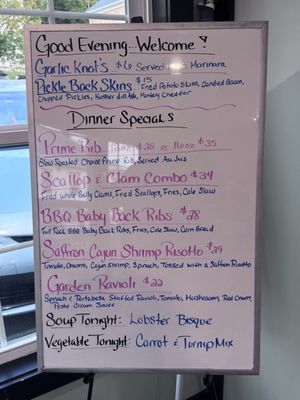 Good Evening... Welcome!
Garlic Knot's $6 Served Marinara
Pickle Back Skins $15 Fried Potato Skins, Candied Bacon,
Chopped Pickles, Kosher dill Aioli, Monterey Cheddar
Dinner Specials
Prime Rib $38 or $35
Slow Roasted Choice Prime Rib, Served Au Jus
Scallop & Clam Combo $34
Fried Whole Belly Clams, Fried Scallops, Fries, Cole Slaw
BBQ Baby Back Ribs $28
Full Rack BBQ Baby Back Ribs, Fries, Cole Slaw, Corn Bread
Saffron Cajun Shrimp Risotto $29
Tomato, Onions, Cajun Shrimp, Spinach, Tossed with a Saffron Risotto
Garden Ravioli $22
Spinach & Portabella Stuffed Ravioli, Tomato, Mushrooms, Red Onions,
Pesto Cream Sauce
Soup Tonight: Lobster Bisque
Vegetable Tonight: Carrot & Turnip Mix